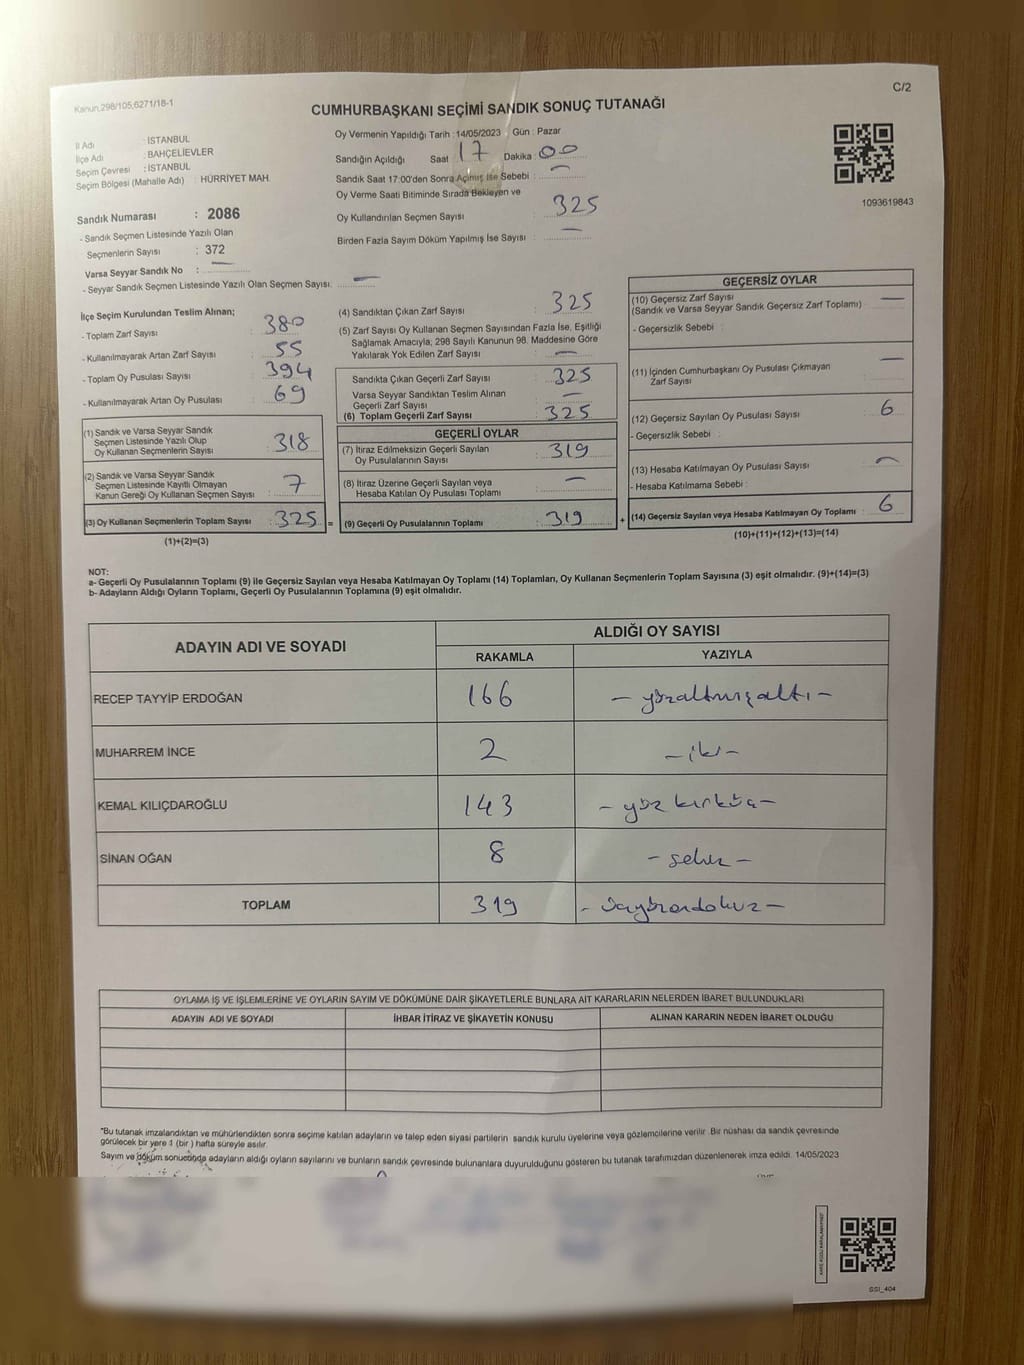 Kanun,298/105,6271/18-1
C/2
CUMHURBAŞKANI SEÇİMİ SANDIK SONUÇ TUTANAĞI
İl Adı : İSTANBUL
İlçe Adı : BAHÇELİEVLER
Seçim Çevresi : İSTANBUL
Seçim Bölgesi (Mahalle Adı) : HÜRRİYET MAH.
Sandık Numarası : 2086
- Sandık Seçmen Listesinde Yazılı Olan
Seçmenlerin Sayısı : 372
Varsa Seyyar Sandık No : —
- Seyyar Sandık Seçmen Listesinde Yazılı Olan Seçmen Sayısı: —
Oy Vermenin Yapıldığı Tarih : 14/05/2023 Gün : Pazar
Sandığın Açıldığı Saat 17 Dakika : 00
Sandık Saat 17:00'den Sonra Açılmış İse Sebebi : —
Oy Verme Saati Bitiminde Sırada Bekleyen ve
Oy Kullandırılan Seçmen Sayısı : 325
Birden Fazla Sayım Döküm Yapılmış İse Sayısı : —
1093619843
İlçe Seçim Kurulundan Teslim Alınan;
- Toplam Zarf Sayısı : 380
- Kullanılmayarak Artan Zarf Sayısı : 55
- Toplam Oy Pusulası Sayısı : 394
- Kullanılmayarak Artan Oy Pusulası : 69
(1) Sandık ve Varsa Seyyar Sandık
Seçmen Listesinde Yazılı Olup
Oy Kullanan Seçmenlerin Sayısı : 318
(2) Sandık ve Varsa Seyyar Sandık
Seçmen Listesinde Kayıtlı Olmayan
Kanun Gereği Oy Kullanan Seçmen Sayısı : 7
(3) Oy Kullanan Seçmenlerin Toplam Sayısı : 325
(1)+(2)=(3)
(4) Sandıktan Çıkan Zarf Sayısı : 325
(5) Zarf Sayısı Oy Kullanan Seçmen Sayısından Fazla İse, Eşitliği
Sağlamak Amacıyla; 298 Sayılı Kanunun 98. Maddesine Göre
Yakılarak Yok Edilen Zarf Sayısı : —
Sandıkta Çıkan Geçerli Zarf Sayısı : 325
Varsa Seyyar Sandıktan Teslim Alınan
Geçerli Zarf Sayısı : —
(6) Toplam Geçerli Zarf Sayısı : 325
GEÇERLİ OYLAR
(7) İtiraz Edilmeksizin Geçerli Sayılan
Oy Pusulalarının Sayısı : 319
(8) İtiraz Üzerine Geçerli Sayılan veya
Hesaba Katılan Oy Pusulası Toplamı : —
= (9) Geçerli Oy Pusulalarının Toplamı : 319
GEÇERSİZ OYLAR
(10) Geçersiz Zarf Sayısı : —
(Sandık ve Varsa Seyyar Sandık Geçersiz Zarf Toplamı)
- Geçersizlik Sebebi :
(11) İçinden Cumhurbaşkanı Oy Pusulası Çıkmayan
Zarf Sayısı : —
(12) Geçersiz Sayılan Oy Pusulası Sayısı : 6
- Geçersizlik Sebebi :
(13) Hesaba Katılmayan Oy Pusulası Sayısı : —
- Hesaba Katılmama Sebebi :
+ (14) Geçersiz Sayılan veya Hesaba Katılmayan Oy Toplamı : 6
(10)+(11)+(12)+(13)=(14)
NOT:
a- Geçerli Oy Pusulalarının Toplamı (9) ile Geçersiz Sayılan veya Hesaba Katılmayan Oy Toplamı (14) Toplamları, Oy Kullanan Seçmenlerin Toplam Sayısına (3) eşit olmalıdır. (9)+(14)=(3)
b- Adayların Aldığı Oyların Toplamı, Geçerli Oy Pusulalarının Toplamına (9) eşit olmalıdır.
ADAYIN ADI VE SOYADI
ALDIĞI OY SAYISI
RAKAMLA YAZIYLA
RECEP TAYYİP ERDOĞAN 166 – yüzaltmışaltı –
MUHARREM İNCE 2 – iki –
KEMAL KILIÇDAROĞLU 143 – yüz kırküç –
SİNAN OĞAN 8 – sekiz –
TOPLAM 319 – üçyüzondokuz –
OYLAMA İŞ VE İŞLEMLERİNE VE OYLARIN SAYIM VE DÖKÜMÜNE DAİR ŞİKAYETLERLE BUNLARA AİT KARARLARIN NELERDEN İBARET BULUNDUKLARI
ADAYIN ADI VE SOYADI İHBAR İTİRAZ VE ŞİKAYETİN KONUSU ALINAN KARARIN NEDEN İBARET OLDUĞU
"Bu tutanak imzalandıktan ve mühürlendikten sonra seçime katılan adayların ve talep eden siyasi partilerin sandık kurulu üyelerine veya gözlemcilerine verilir. Bir nüshası da sandık çevresinde
görülecek bir yere 1 (bir) hafta süreyle asılır.
Sayım ve döküm sonucunda adayların aldığı oyların sayılarını ve bunların sandık çevresinde bulunanlara duyurulduğunu gösteren bu tutanak tarafımızdan düzenlenerek imza edildi. 14/05/2023
SSI_404